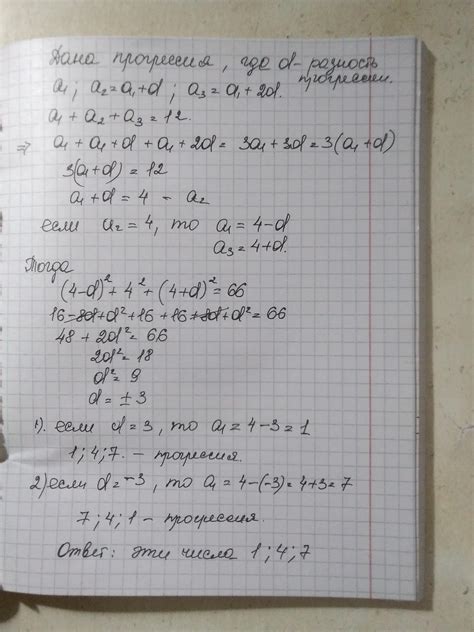 Дана прогрессия, где d - разность
прогрессии.
a₁; a₂=a₁+d; a₃=a₁+2d.
a₁+a₂+a₃=12.
⇒ a₁+a₁+d+a₁+2d=3a₁+3d=3(a₁+d)
3(a₁+d)=12
a₁+d=4 - a₂
если a₂=4, то a₁=4-d
a₃=4+d.
Тогда
(4-d)²+4²+(4+d)²=66
16-8d+d²+16+16+8d+d²=66
48+2d²=66
2d²=18
d²=9
d=±3
1). если d=3, то a₁=4-3=1
1; 4; 7. - прогрессия.
2) если d=-3, то a₁=4-(-3)=4+3=7
7; 4; 1 - прогрессия.
Ответ: эти числа 1; 4; 7